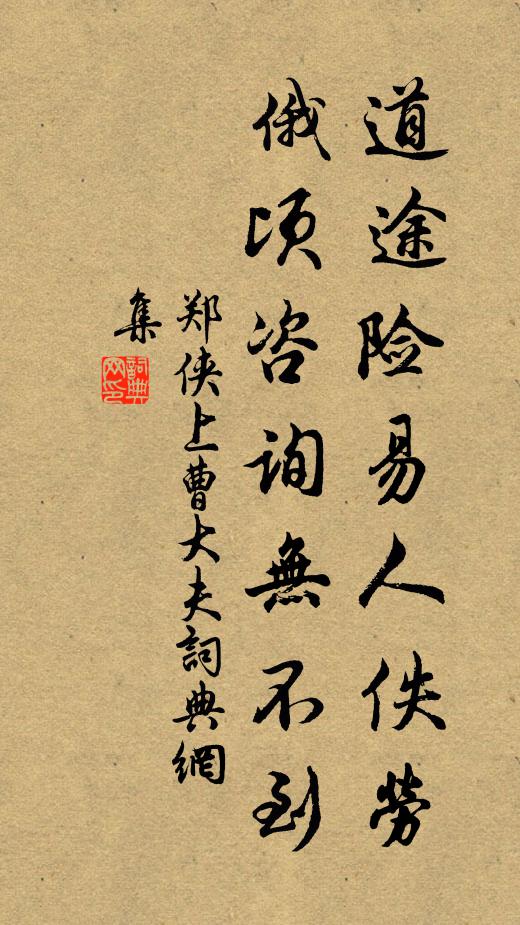 道途险易人佚勞
俄顷咨询無不到
郑侠上曹大夫詞典網
集
詞典网印